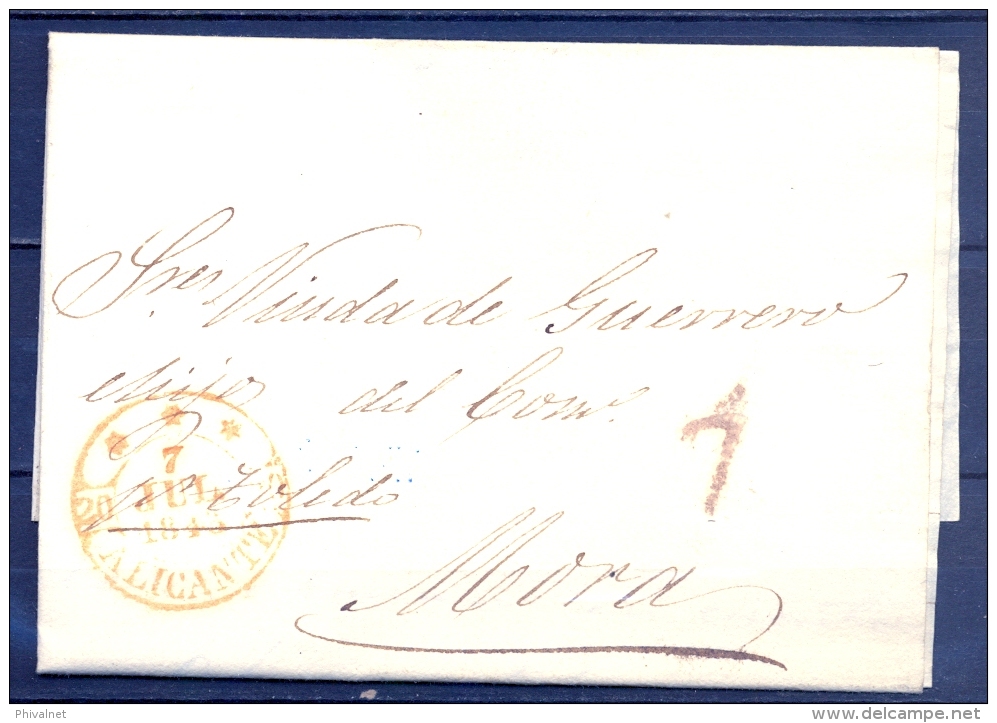 Sres Viuda de Guerrero
é hijos del Como.
pr Toledo
Mora
1
7
JUL
ALICANTE
Phivalnet
www.delcampe.net